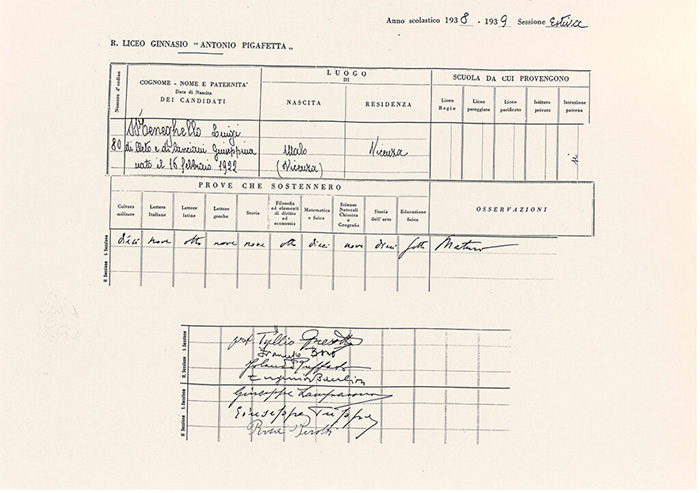 Anno scolastico 1938 - 1939 Sessione Estiva
R. LICEO GINNASIO "ANTONIO PIGAFETTA"
Numero d'ordine
COGNOME - NOME E PATERNITA'
Data di Nascita
DEI CANDIDATI
LUOGO
DI
NASCITA
RESIDENZA
SCUOLA DA CUI PROVENGONO
Liceo Regio
Liceo pareggiato
Liceo parificato
Istituto privato
Istruzione paterna
Meneghello Luigi
80 di Cleto e di Canciani Giuseppina
nato il 16 febbraio 1922
Malo
(Vicenza)
Vicenza
si
PROVE CHE SOSTENNERO
Cultura militare
Lettere Italiane
Lettere latine
Lettere greche
Storia
Filosofia ed elementi di diritto ed economia
Matematica e fisica
Scienze Naturali Chimica e Geografia
Storia dell'arte
Educazione fisica
OSSERVAZIONI
I. Sessione
dieci nove otto nove nove otto dieci nove dieci sette Maturo
II Sessione
I. Sessione
II. Sessione
I. Sessione
II Sessione
prof. Tullio
Giuseppe
Giuseppe